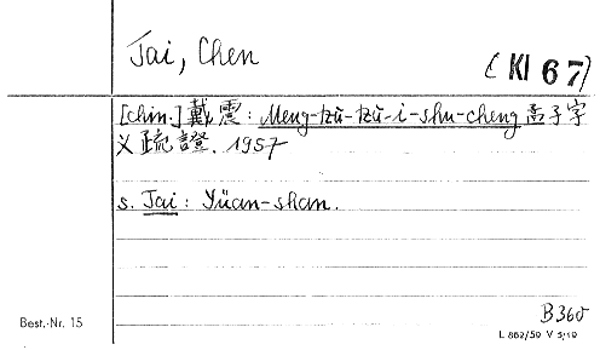 Tai, Chen
(KI 67)
[chin.] 戴震: Meng-tzŭ-tzŭ-i-shu-cheng 孟子字
义疏證. 1957
s. Tai: Yüan-shan.
B360
Best.-Nr. 15
L 862/59 V 5/19